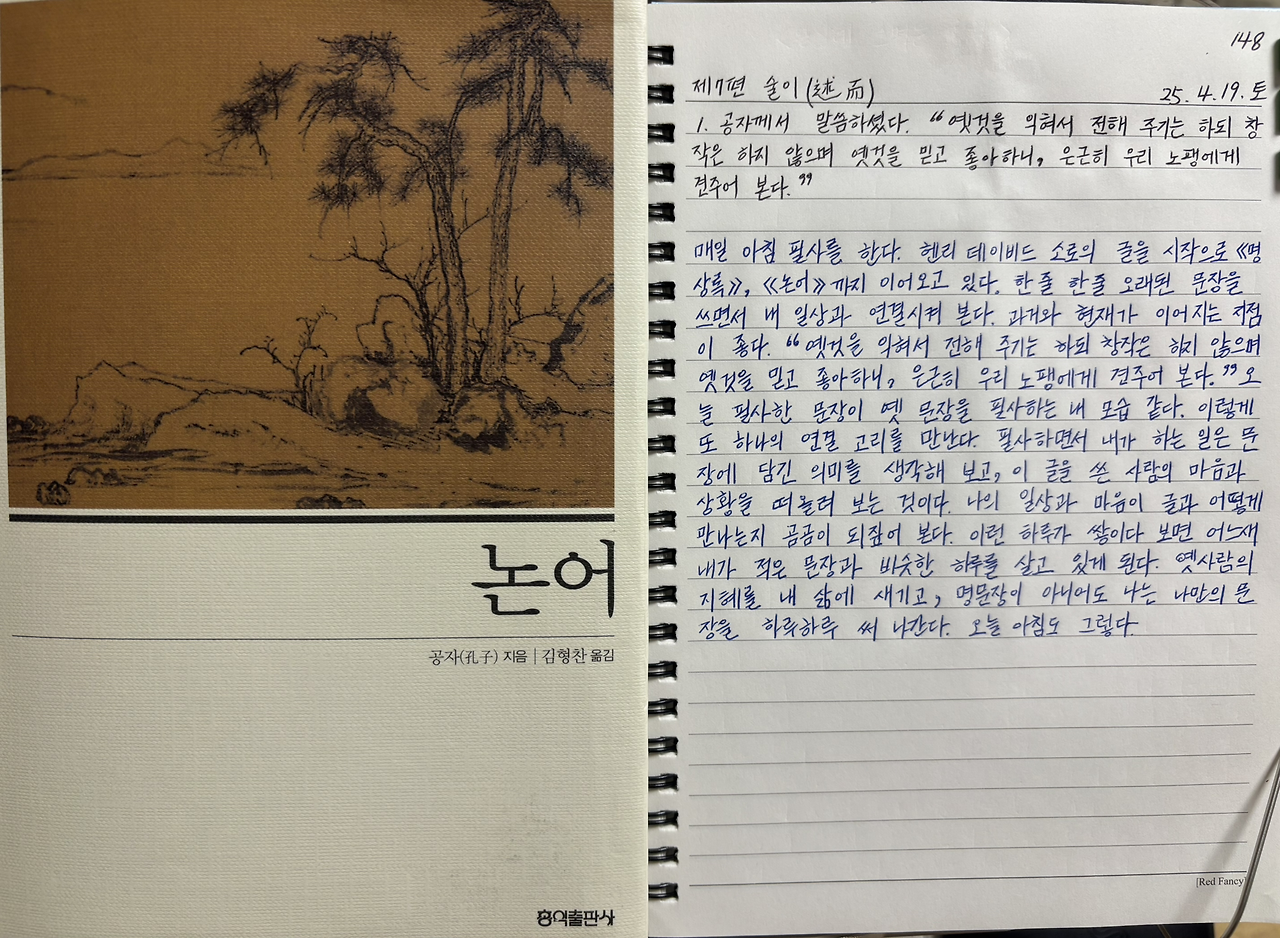 논어
공자(孔子) 지음 | 김형찬 옮김
홍익출판사
148
제7편 술이(述而)
25. 4. 19. 토
1. 공자께서 말씀하셨다. “옛것을 익혀서 전해 주기는 하되 창
작은 하지 않으며 옛것을 믿고 좋아하니, 은근히 우리 노팽에게
견주어 본다.”
매일 아침 필사를 한다. 헨리 데이비드 소로의 글을 시작으로 《명
상록》, 《논어》까지 이어오고 있다. 한 줄 한 줄 오래된 문장을
쓰면서 내 일상과 연결시켜 본다. 과거와 현재가 이어지는 지점
이 좋다. “옛것을 익혀서 전해 주기는 하되 창작은 하지 않으며
옛것을 믿고 좋아하니, 은근히 우리 노팽에게 견주어 본다.” 오
늘 필사한 문장이 옛 문장을 필사하는 내 모습 같다. 이렇게
또 하나의 연결 고리를 만난다. 필사하면서 내가 하는 일은 문
장에 담긴 의미를 생각해 보고, 이 글을 쓴 사람의 마음과
상황을 떠올려 보는 것이다. 나의 일상과 마음이 글과 어떻게
만나는지 곰곰이 되짚어 본다. 이런 하루가 쌓이다 보면 어느새
내가 적은 문장과 비슷한 하루를 살고 있게 된다. 옛사람의
지혜를 내 삶에 새기고, 명문장이 아니어도 나는 나만의 문
장을 하루하루 써 나간다. 오늘 아침도 그렇다.
[Red Fancy]